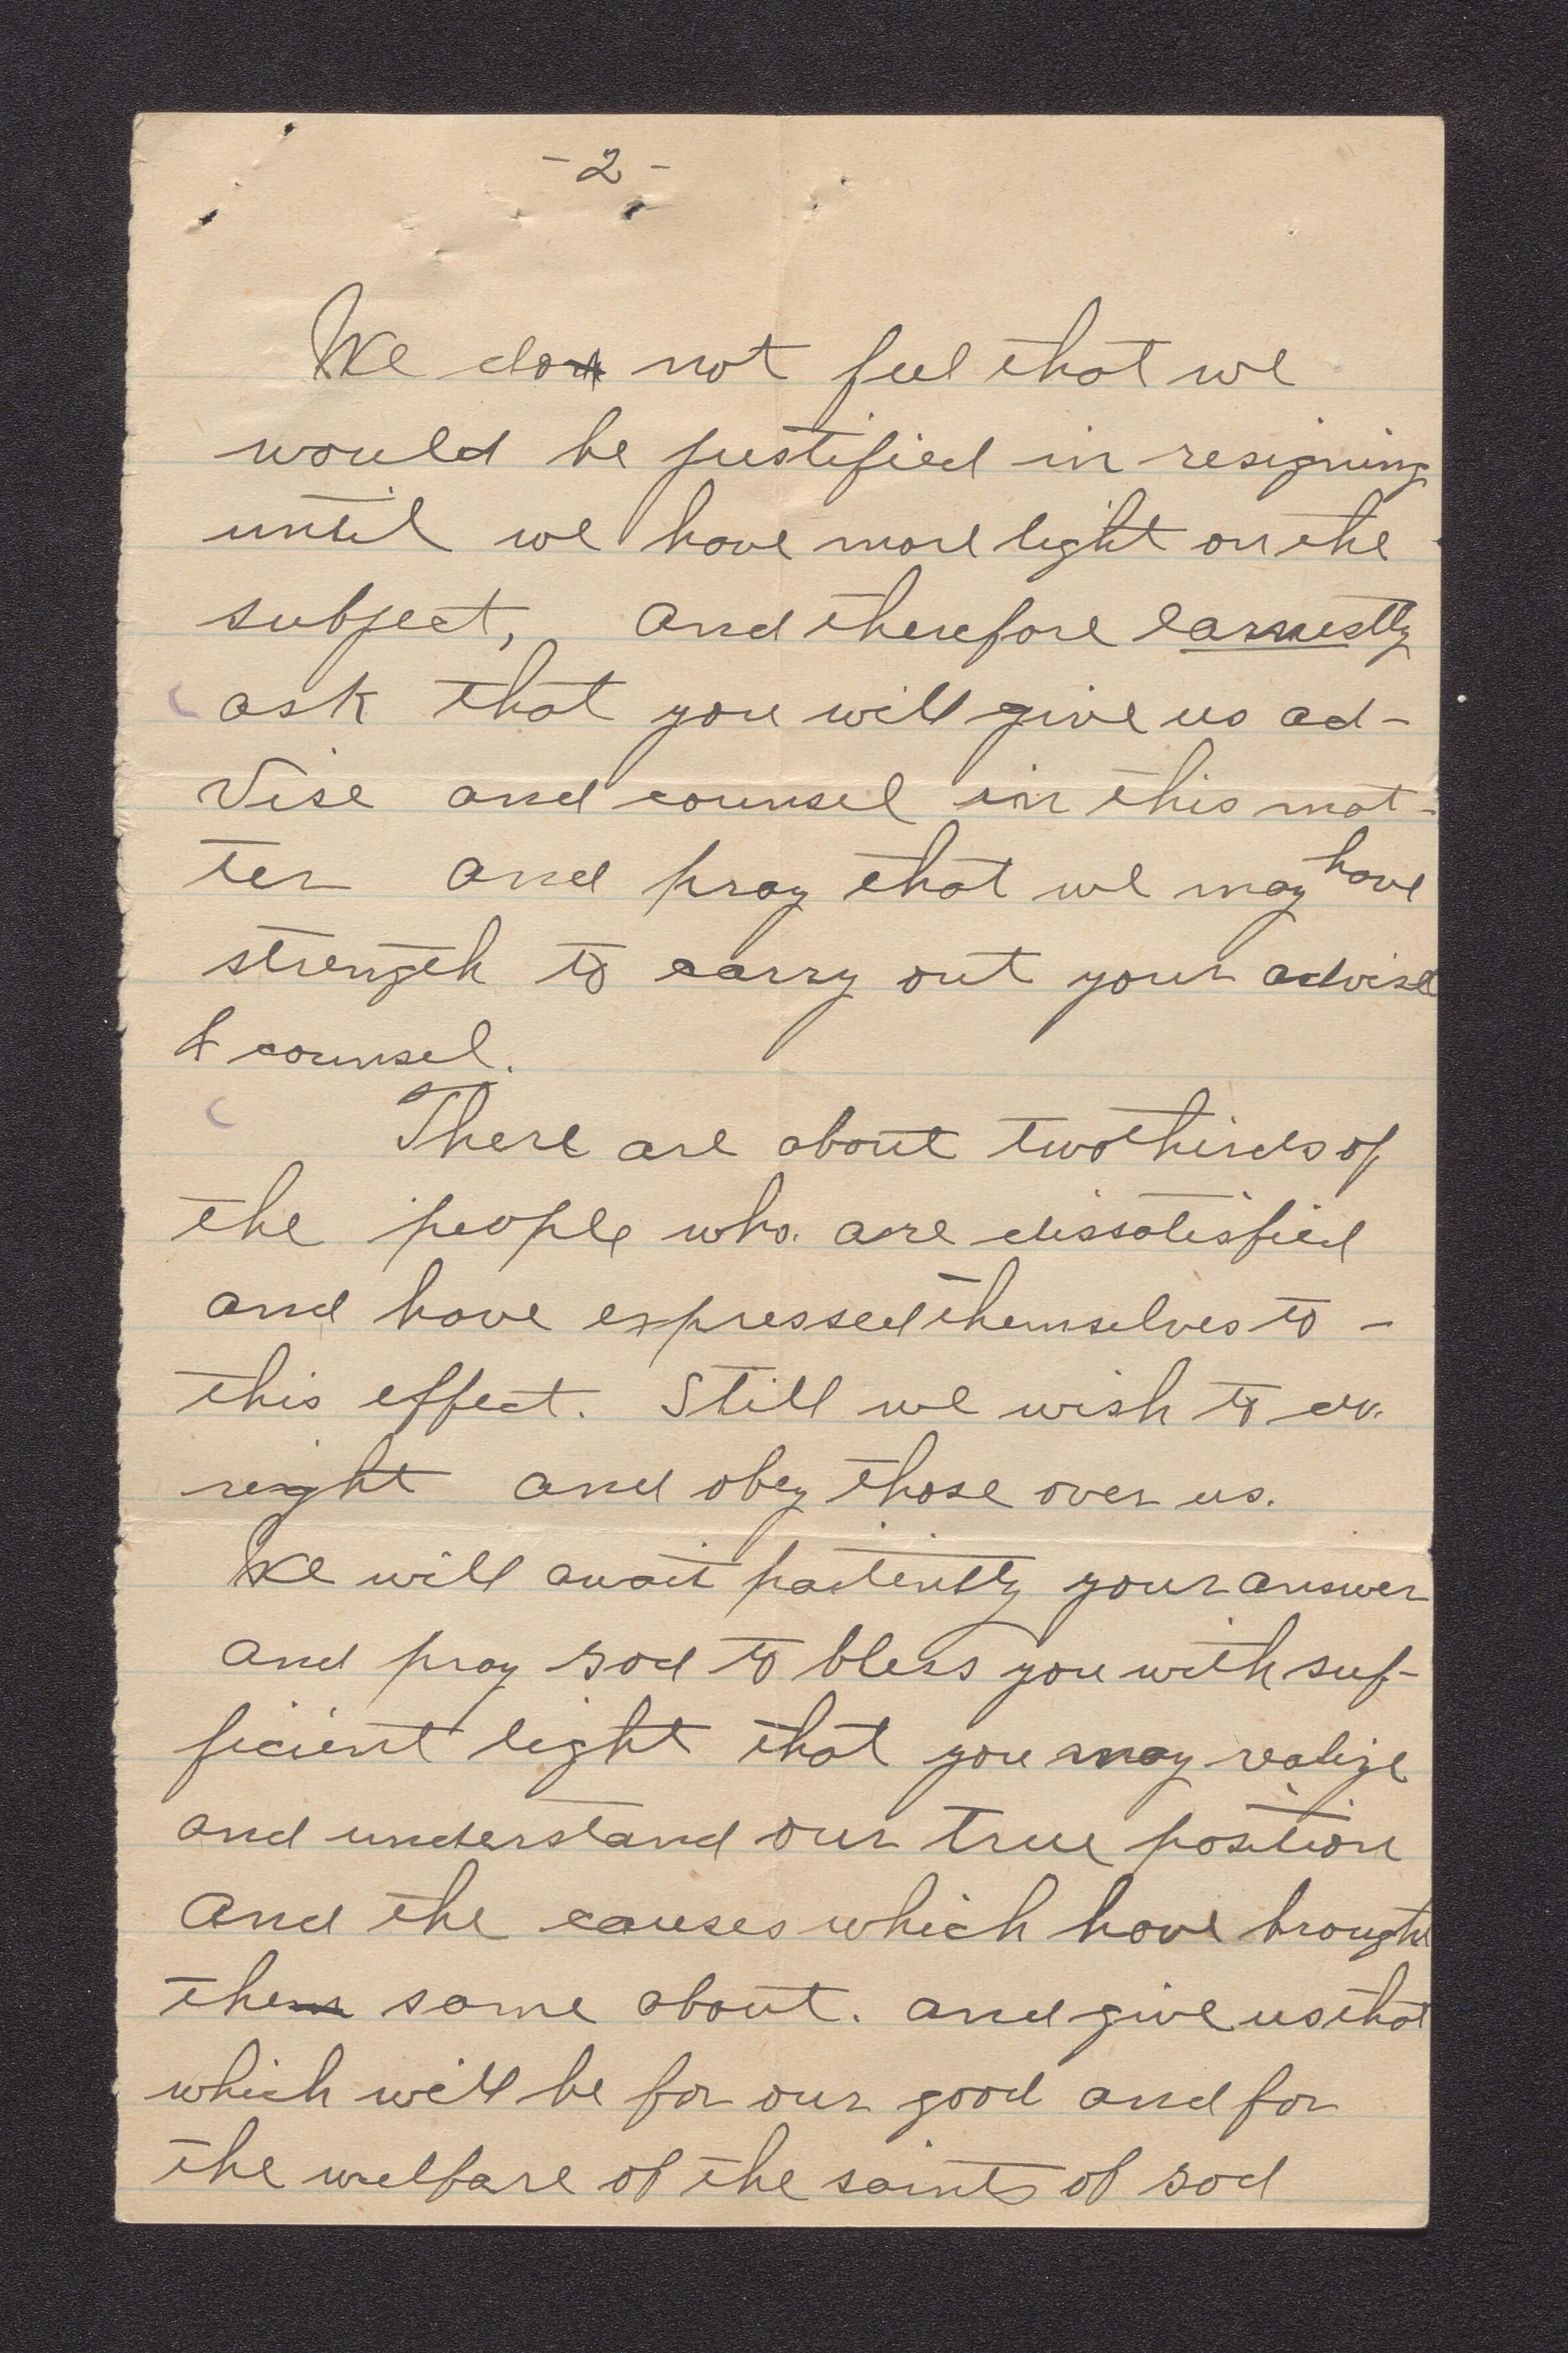 - 2 -
We do not feel that we
would be justified in resigning
until we have more light on the
subject, and therefore earnestly
ask that you will give us ad-
vise and counsel in this mat-
ter and pray that we may have
strength to carry out your advise
& counsel.
There are about two thirds of
the people who are dissatisfied
and have expressed themselves to -
this effect. Still we wish to do
right and obey those over us.
We will await patiently your answer
and pray God to bless you with suf-
ficient light that you may realize
and understand our true position
and the causes which have brought
the same about. and give us that
which will be for our good and for
the welfare of the saints of God